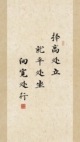 择高处立
就平处坐
向宽处行